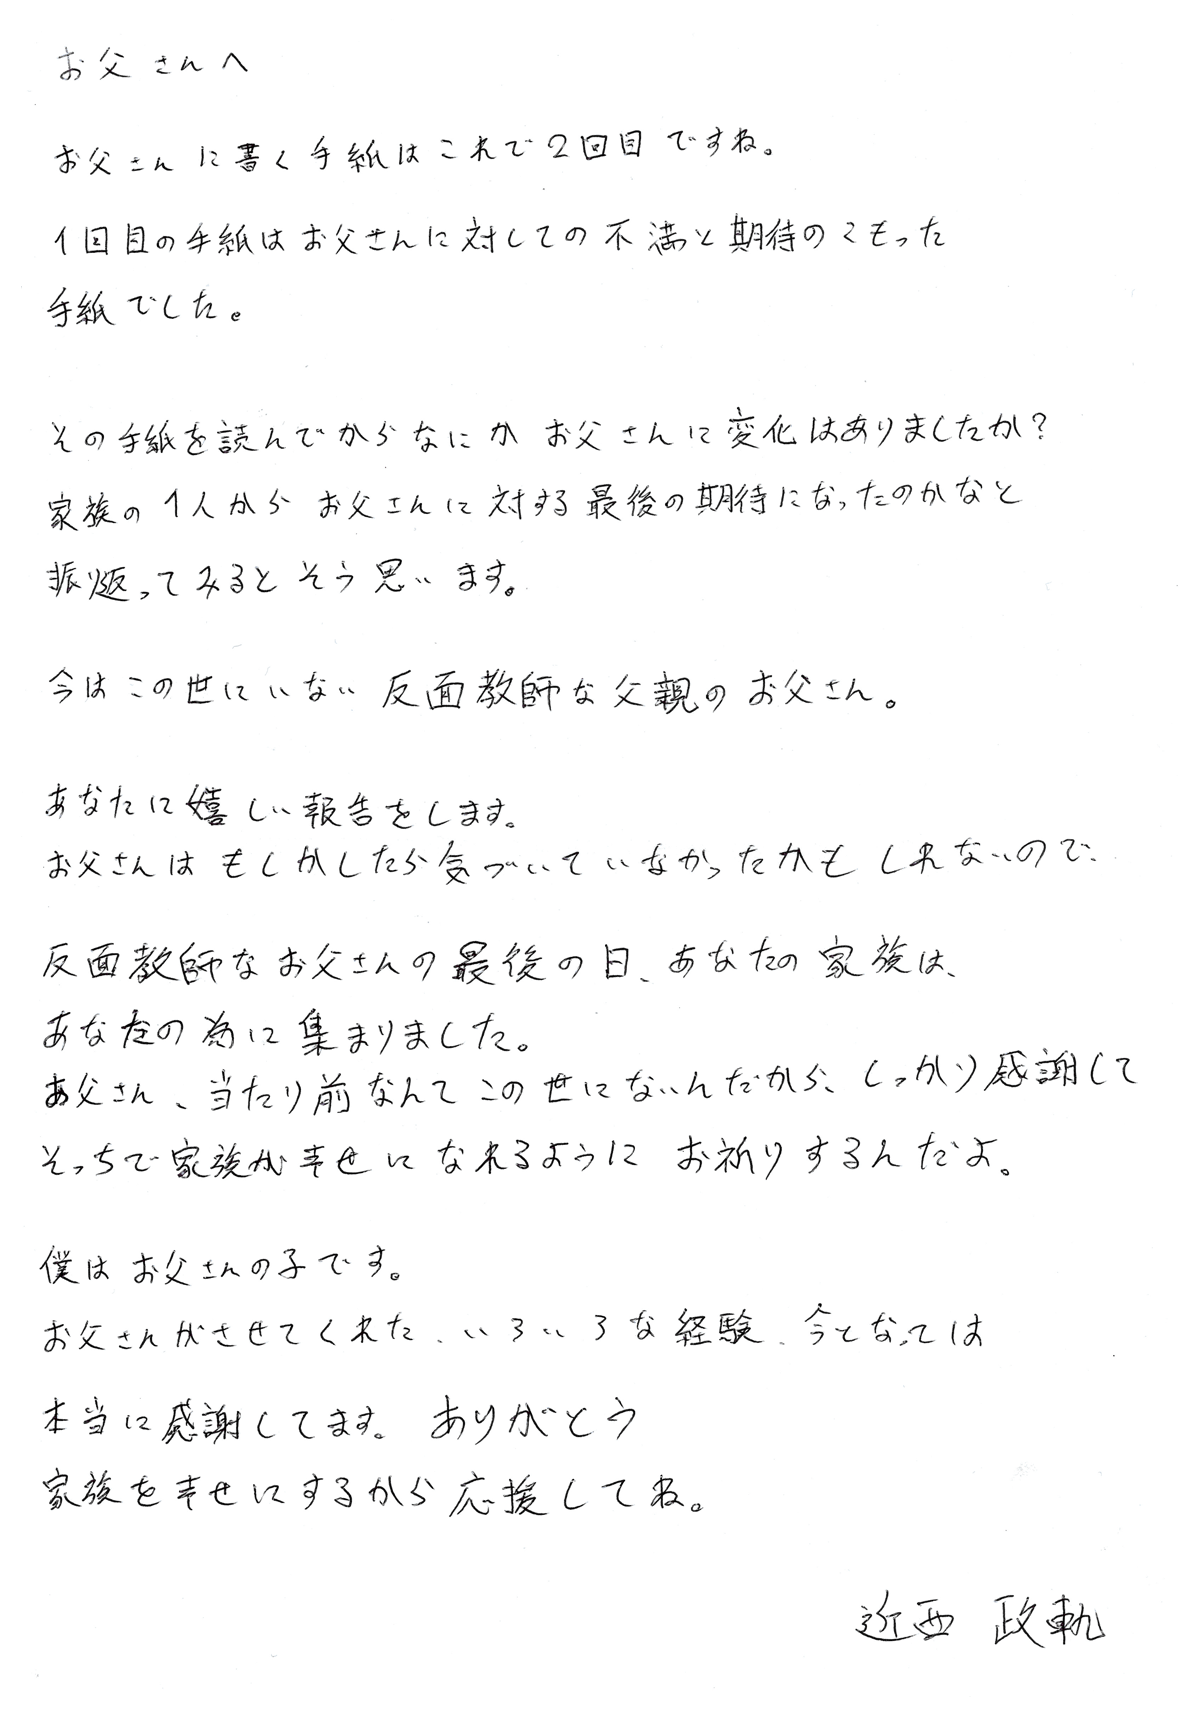 お父さんへ
お父さんに書く手紙はこれで2回目ですね。
1回目の手紙はお父さんに対しての不満と期待のこもった
手紙でした。
その手紙を読んでからなにかお父さんに変化はありましたか?
家族の1人からお父さんに対する最後の期待になったのかなと
振り返ってみるとそう思います。
今はこの世にいない反面教師な父親のお父さん。
あなたに嬉しい報告をします。
お父さんはもしかしたら気づいていなかったかもしれないので、
反面教師なお父さんの最後の日、あなたの家族は、
あなたの為に集まりました。
お父さん、当たり前なんてこの世にないんだから、しっかり感謝して
そっちで家族が幸せになれるようにお祈りするんだよ。
僕はお父さんの子です。
お父さんがさせてくれた、いろいろな経験、今となっては
本当に感謝してます。ありがとう
家族を幸せにするから応援してね。
近西 政軌